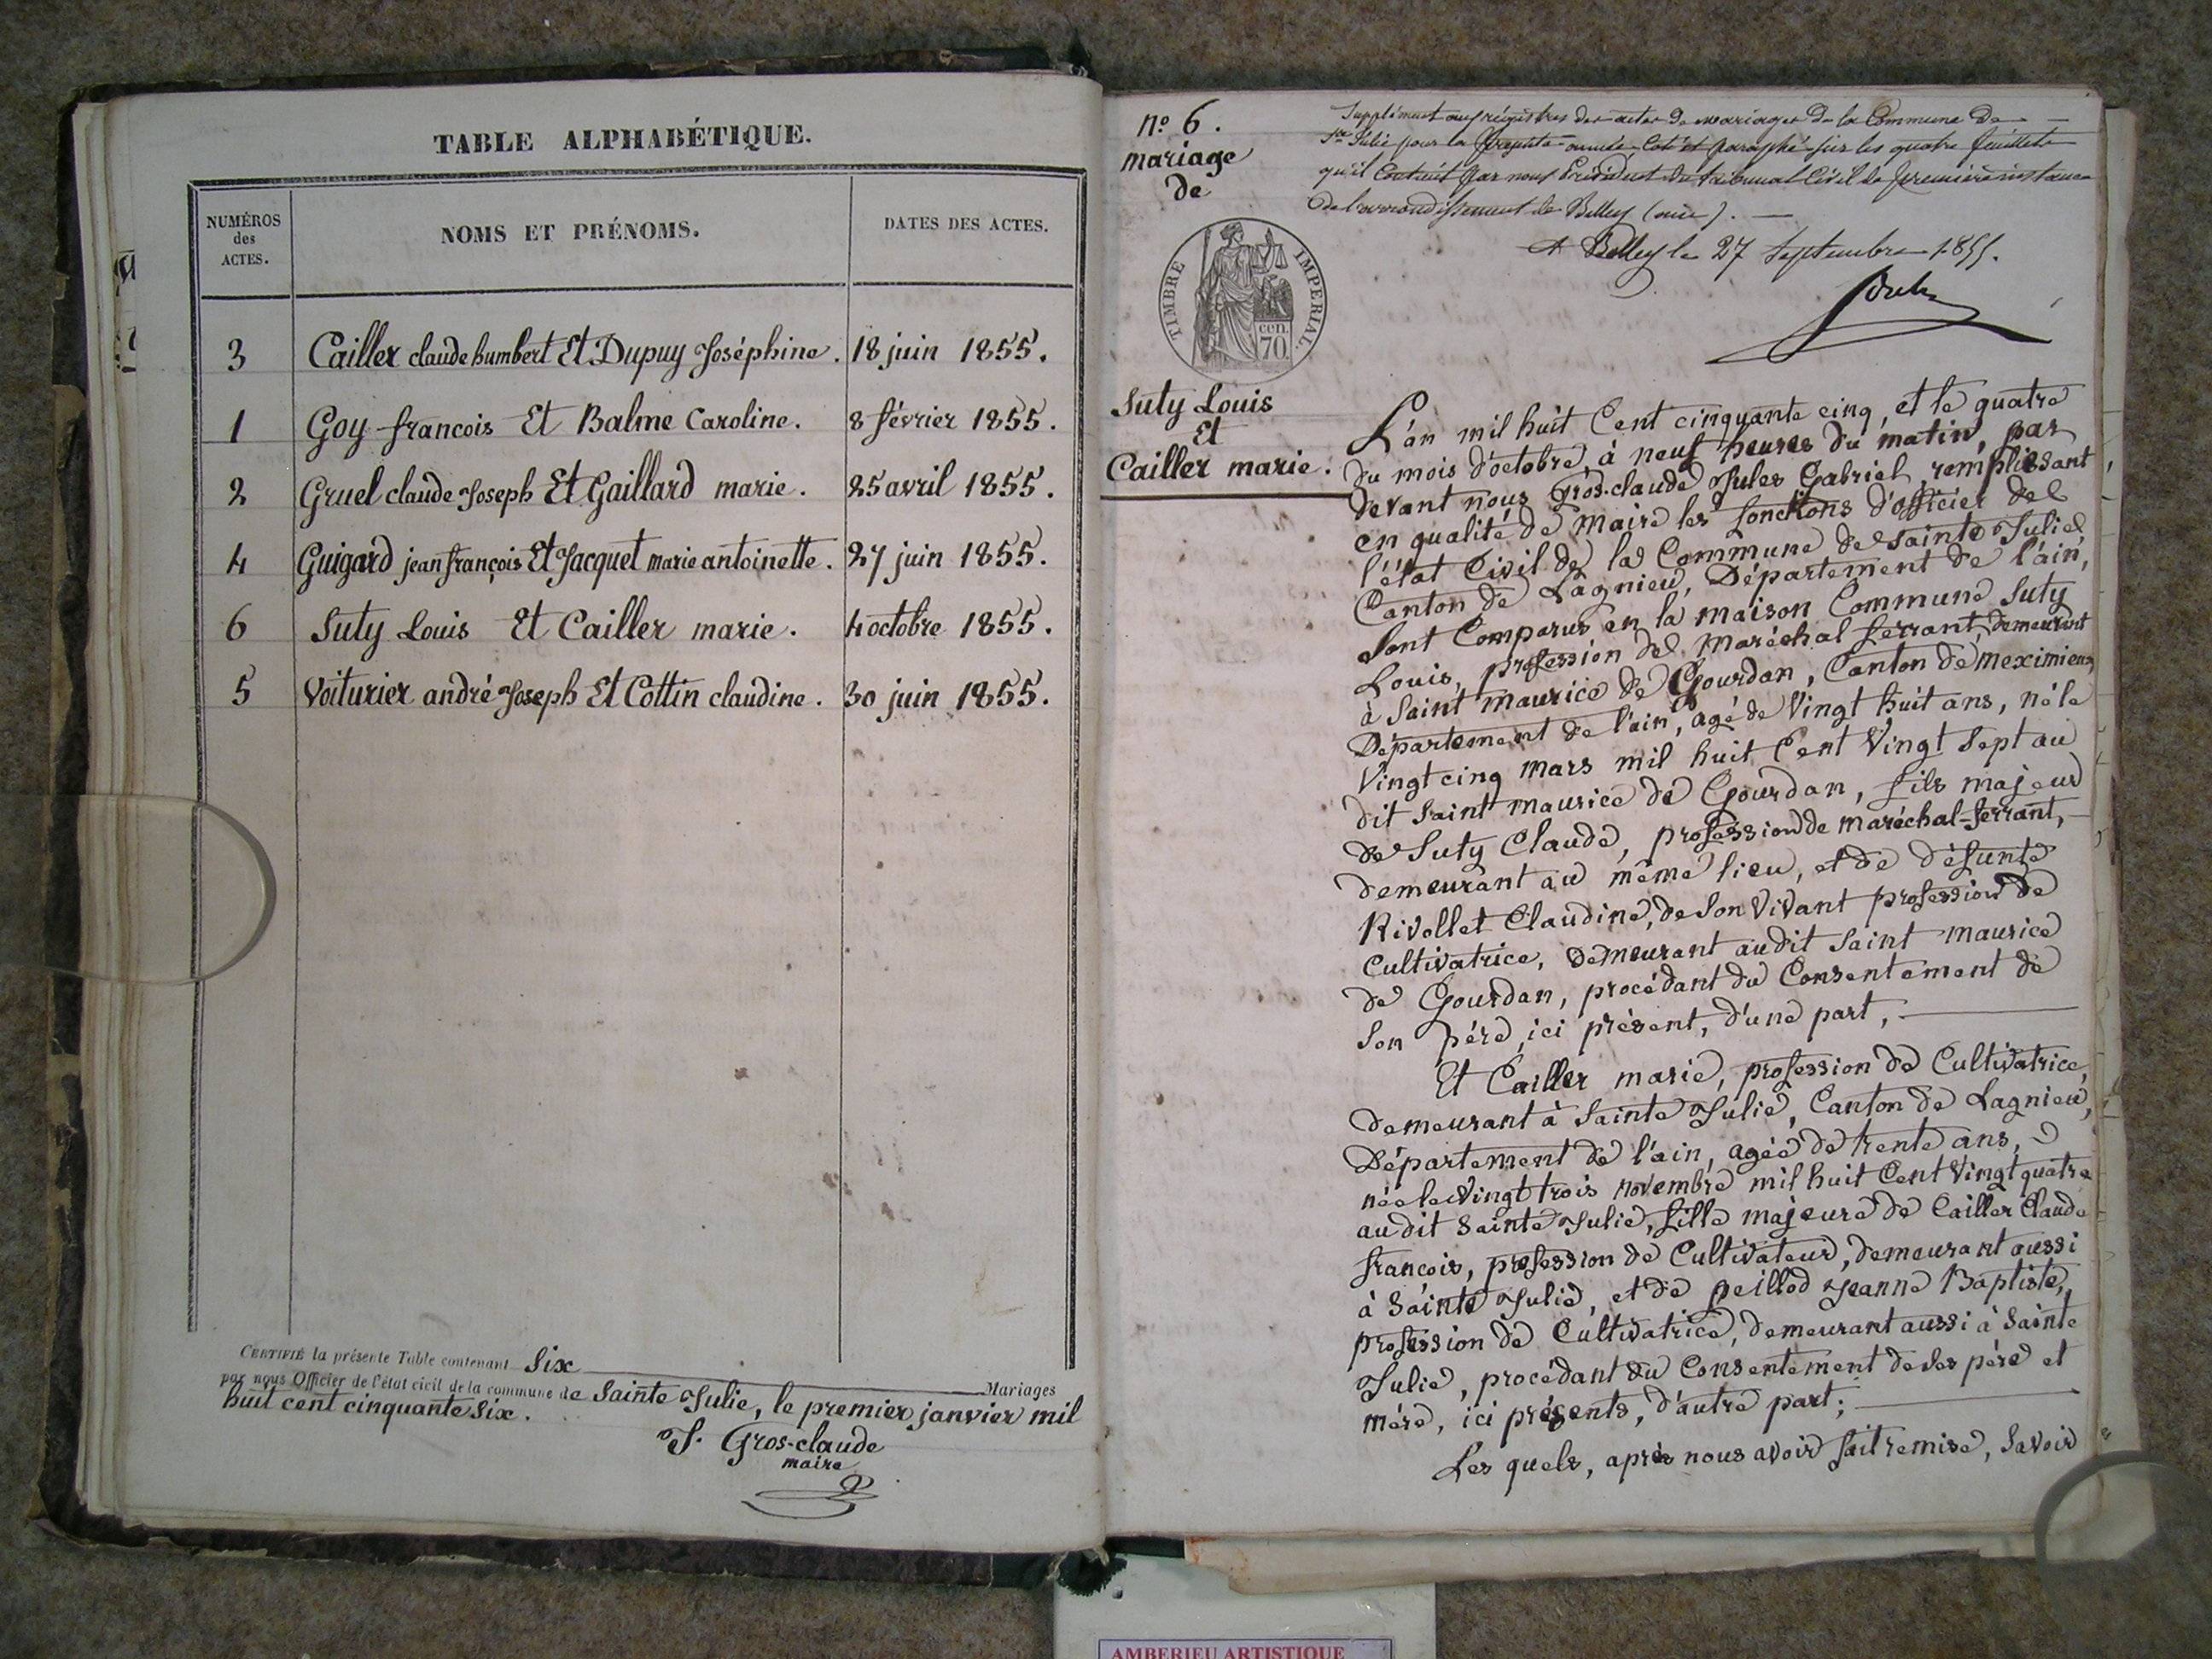 TABLE ALPHABÉTIQUE.
NUMÉROS
des
ACTES.
NOMS ET PRÉNOMS.
DATES DES ACTES.
3 Cailler claude humbert Et Dupuy Joséphine. 18 juin 1855.
1 Goy francois Et Balme Caroline. 8 février 1855.
2 Gruel claude Joseph Et Gaillard marie. 25 avril 1855.
4 Guigard jean françois Et Jacquet marie antoinette. 27 juin 1855.
6 Suty Louis Et Cailler marie. 4 octobre 1855.
5 Voiturier andré Joseph Et Cottin claudine. 30 juin 1855.
CERTIFIÉ la présente Table contenant Six Mariages
par nous Officier de l'état civil de la commune de Sainte Julie, le premier janvier mil
huit cent cinquante six.
J. Gros-claude
maire
nº 6.
mariage
de
Supplément aux régistres des actes de mariages de la Commune de
Ste Julie pour la présente année Coté et paraphé sur les quatre feuillets
qu'il Contient par nous Président du tribunal Civil de première instance
de l'arrondissement de Belley (ain).
A Belley le 27 Septembre 1855.
TIMBRE IMPERIAL.
cen.
70
Suty Louis
Et
Cailler marie.
L'an mil huit Cent cinquante cinq, et le quatre
du mois d'octobre, à neuf heures du matin, par
devant nous Gros-claude Jules Gabriel, remplissant
en qualité de maire les fonctions d'officier de
l'état Civil de la Commune de Sainte Julie
Canton de Lagnieu, Département de l'ain,
Sont Comparus en la maison Commune Suty
Louis, profession de Maréchal ferrant, demeurant
à Saint maurice de Gourdan, Canton de meximieux,
Département de l'ain, agé de Vingt huit ans, né le
Vingt cinq mars mil huit Cent Vingt Sept au
dit Saint maurice de Gourdan, fils majeur
de Suty Claude, profession de maréchal-ferrant,
demeurant au même lieu, et de défunte
Rivollet Claudine, de Son Vivant profession de
Cultivatrice, demeurant audit Saint maurice
de Gourdan, procédant du Consentement de
Son père, ici présent, d'une part,
Et Cailler marie, profession de Cultivatrice,
demeurant à Sainte Julie, Canton de Lagnieu,
Département de l'ain, agée de trente ans,
née le Vingt trois novembre mil huit Cent Vingt quatre
audit Sainte Julie, fille majeure de Cailler Claude
francois, profession de Cultivateur, demeurant aussi
à Sainte Julie, et de peillod Jeanne Baptiste,
profession de Cultivatrice, demeurant aussi à Sainte
Julie, procédant du Consentement de ses père et
mère, ici présents, d'autre part;
Les quels, après nous avoir fait remise, Savoir
AMBERIEU ARTISTIQUE